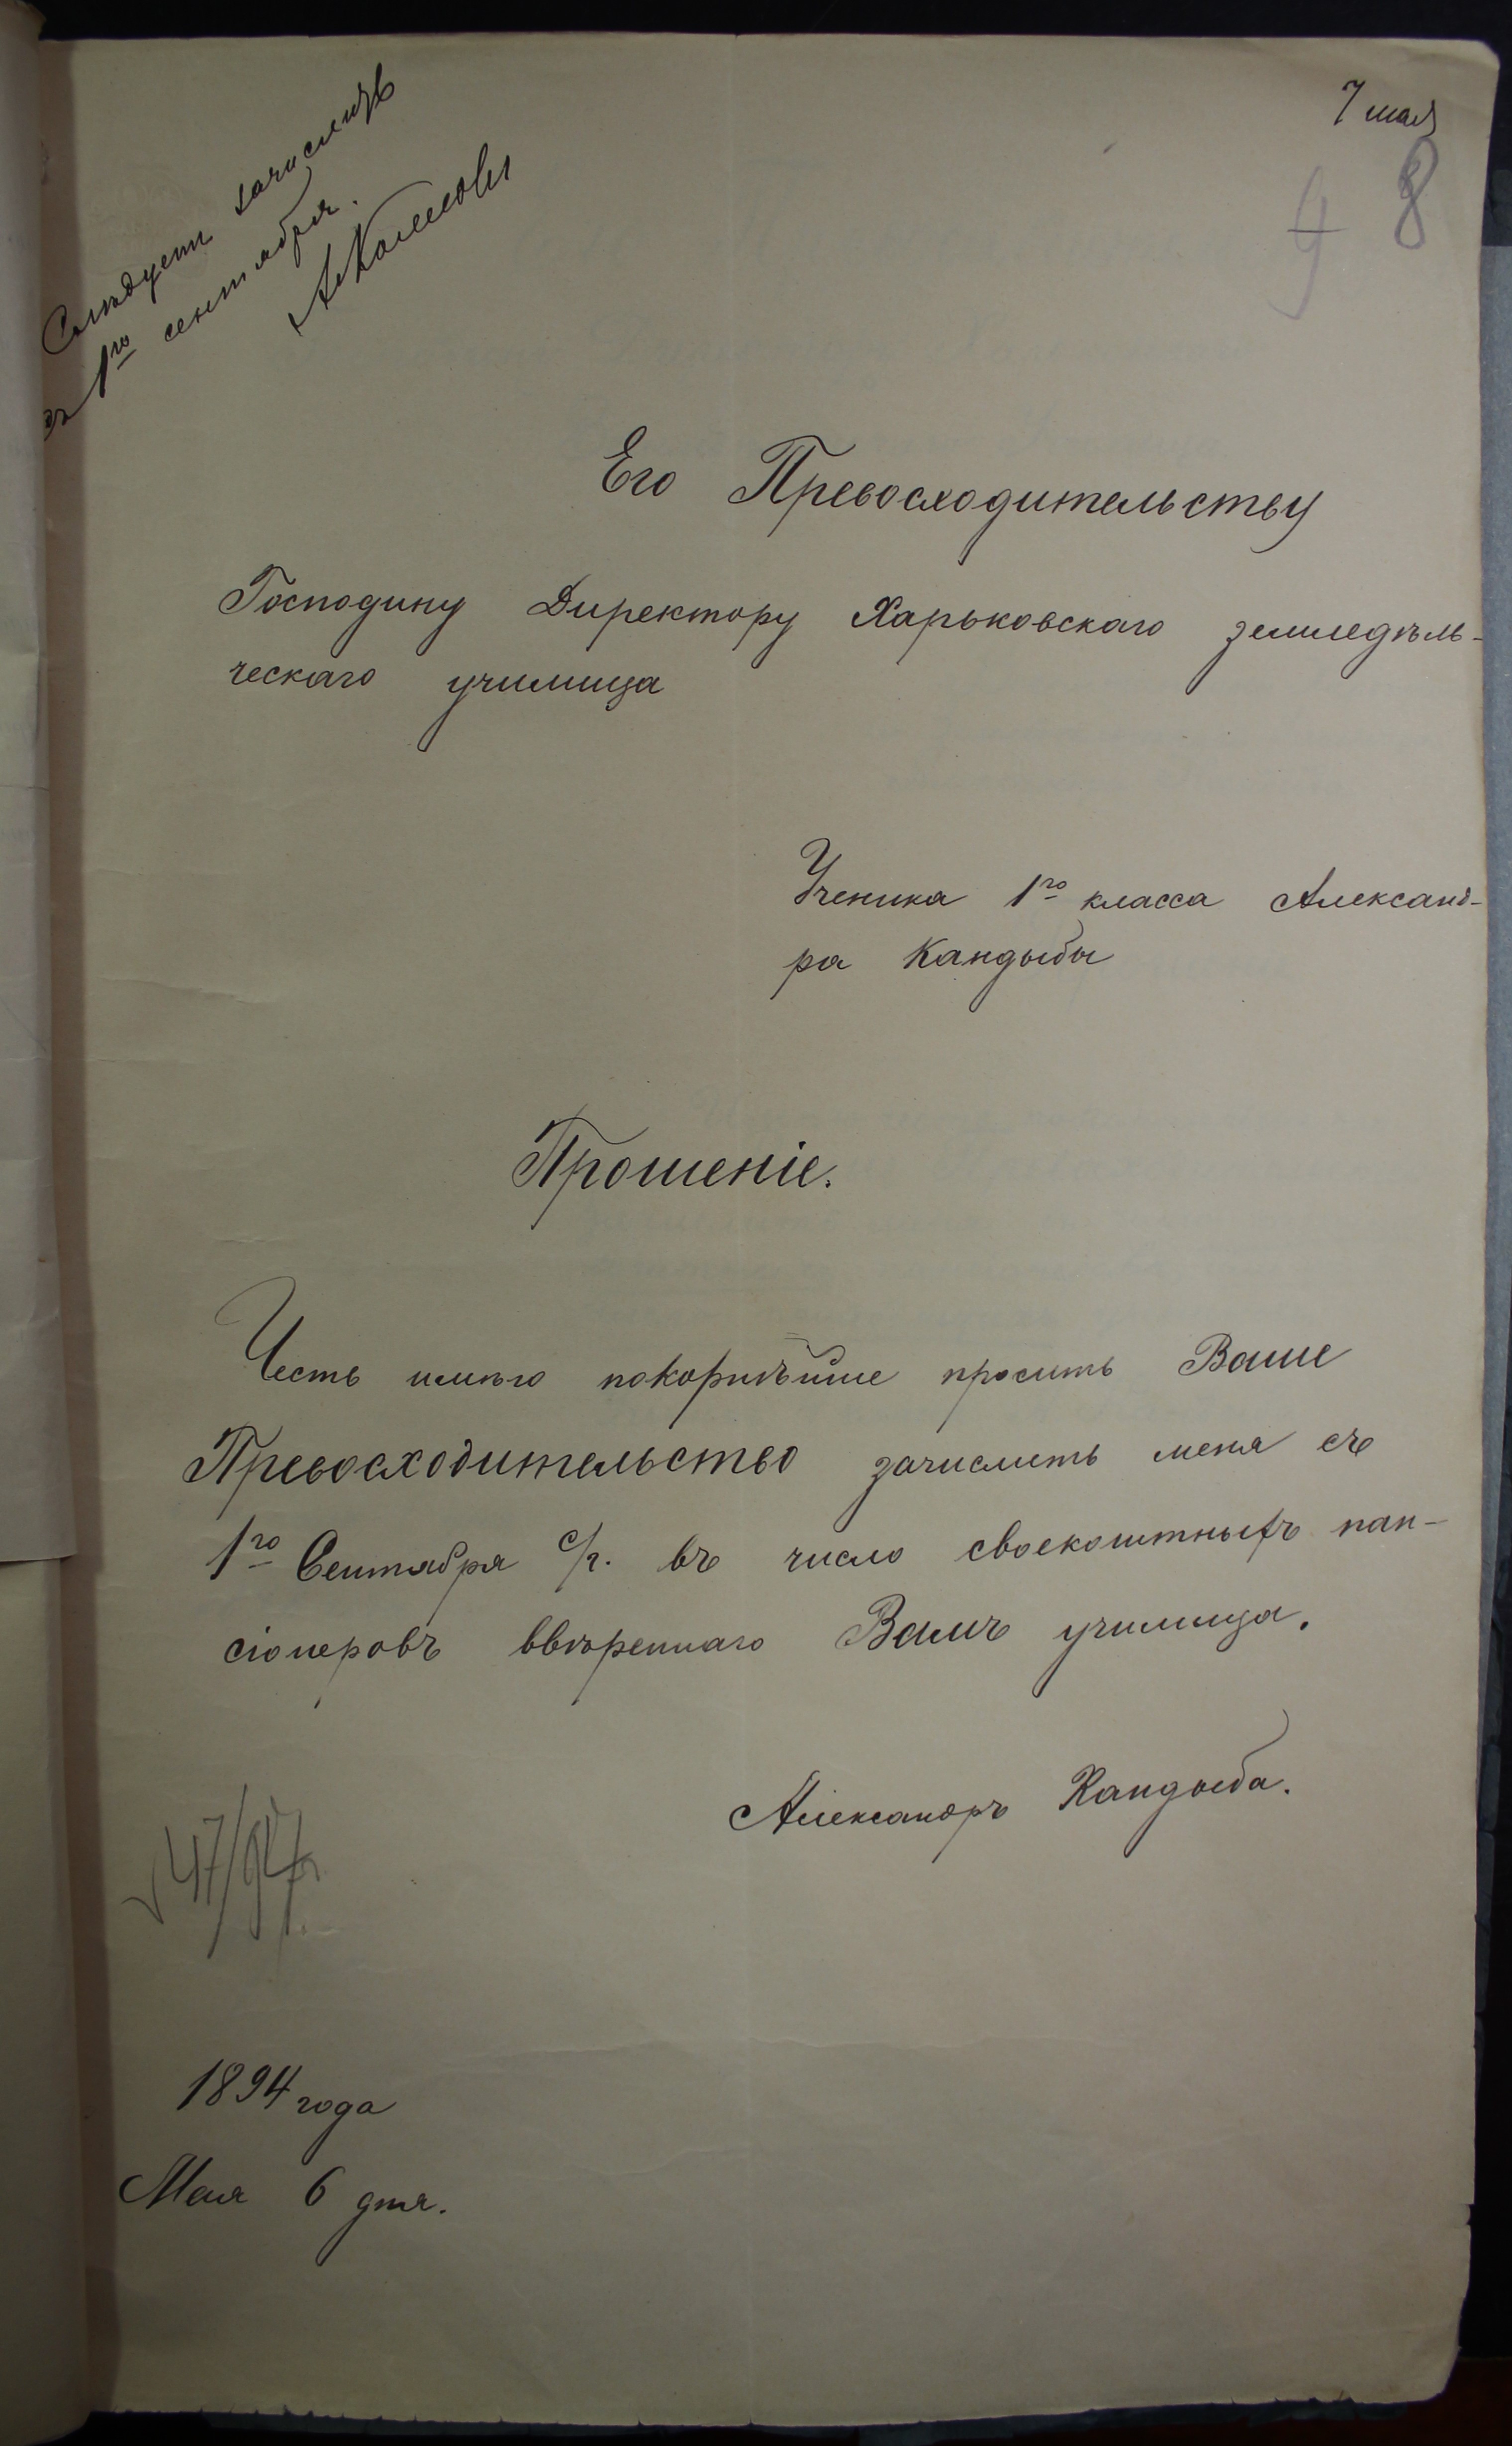 7 мая
8
Слѣдуетъ зачислить
съ 1го сентября.
Его Превосходительству
Господину Директору Харьковскаго земледѣль-
ческаго училища
Ученика 1го класса Александ-
ра Кандыбы
Прошеніе.
Честь имѣю покорнѣйше просить Ваше
Превосходительство зачислить меня съ
1го Сентября с/г. въ число своекоштныхъ пан-
сіонеровъ ввѣреннаго Вамъ училища.
Александръ Кандыба.
47/94г.
1894 года
Мая 6 дня.